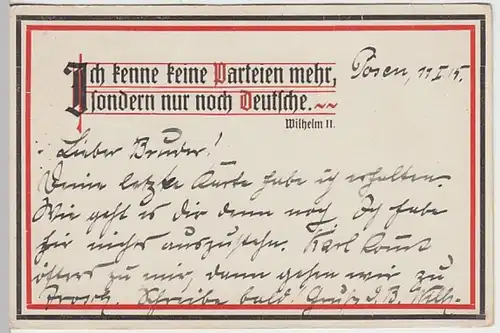 Ich kenne keine Parteien mehr,
sondern nur noch Deutsche.
Wilhelm II.
Posen, 11 I 15.
Lieber Bruder!
Deine letzte Karte habe ich erhalten.
Wie geht es dir denn noch. Ich habe
hir nichts auszustehn. Karl komt
öfters zu mir, dann gehen wir zu
Schreibe bald. Gruß d. B. Wilh.